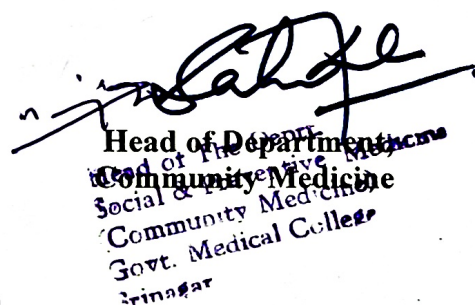 Head of Department,
Community Medicine
Head of The Deptt.
Social & Preventive Medicine
(Community Medicine)
Govt. Medical College
Srinagar